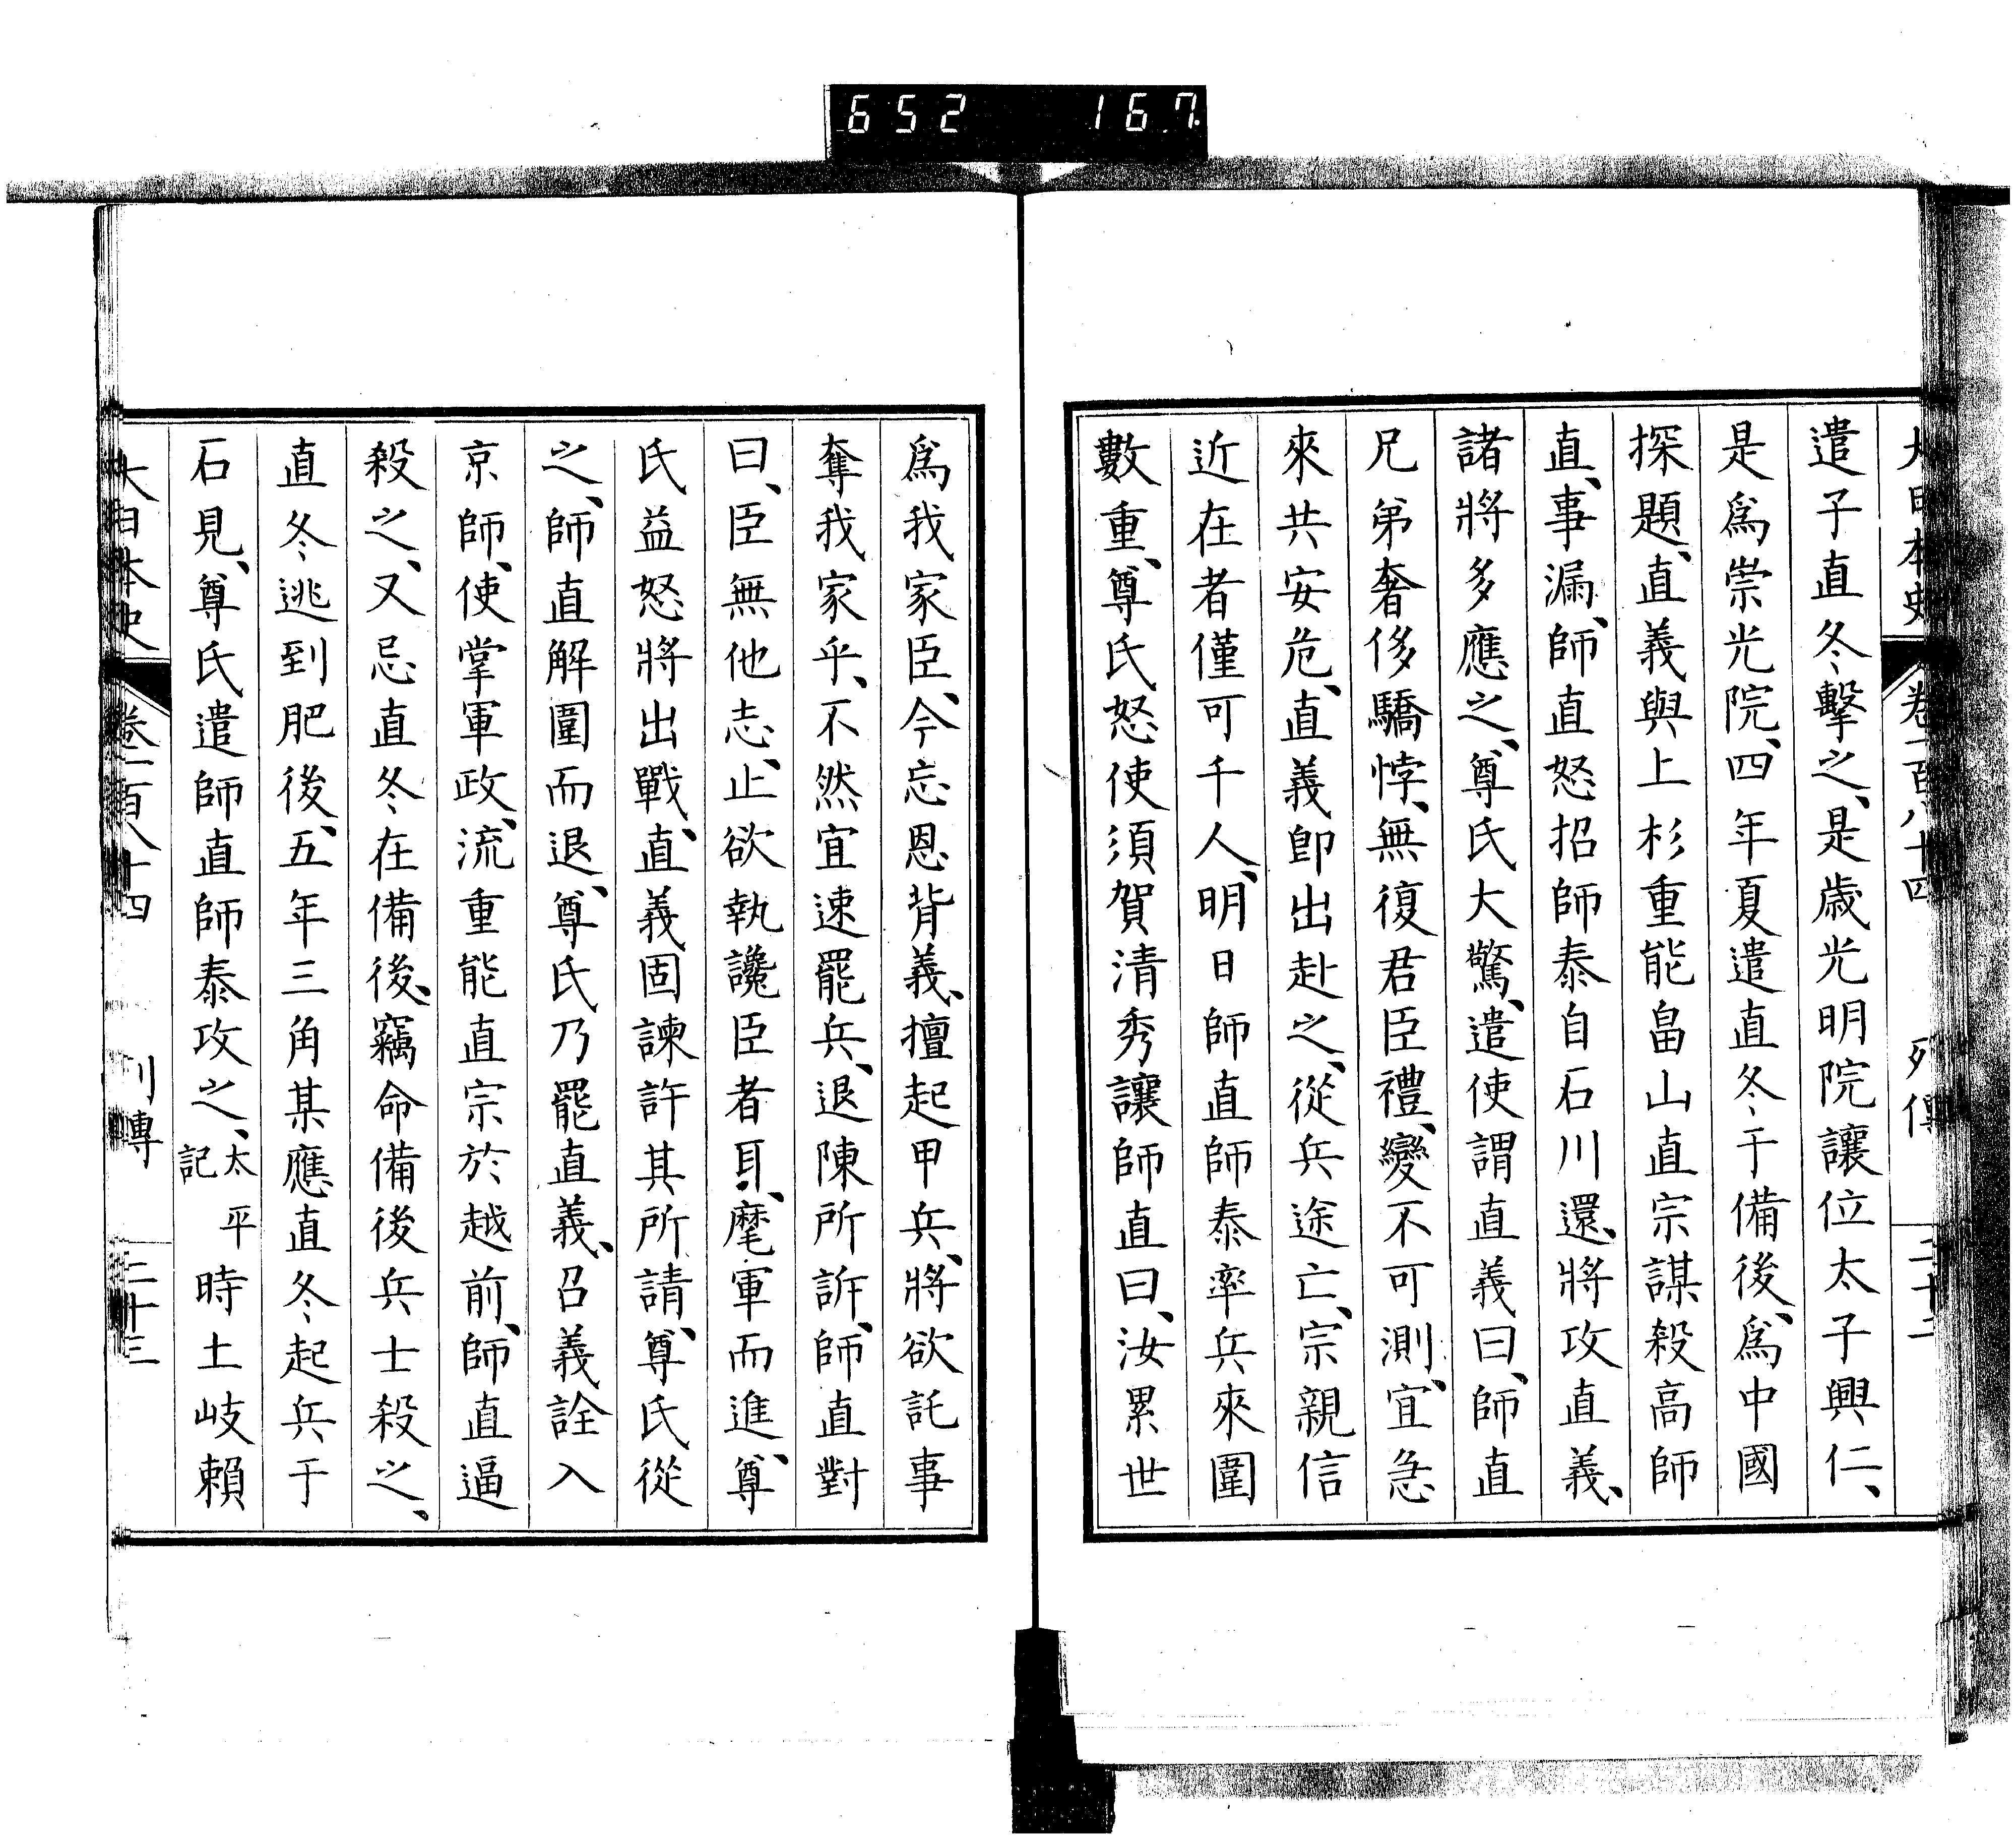 652 167
大日本史 卷一百八十四 列傳 二十二
遣子直冬擊之、是歲光明院讓位太子興仁、
是爲崇光院、四年夏遣直冬于備後、爲中國
探題、直義與上杉重能畠山直宗謀殺高師
直、事漏、師直怒招師泰自石川還、將攻直義、
諸將多應之、尊氏大驚、遣使謂直義曰、師直
兄弟奢侈驕悖、無復君臣禮、變不可測、宜急
來共安危、直義卽出赴之、從兵途亡、宗親信
近在者僅可千人、明日師直師泰率兵來圍
數重、尊氏怒使須賀清秀讓師直曰、汝累世
爲我家臣、今忘恩背義、擅起甲兵、將欲託事
奪我家乎、不然宜速罷兵、退陳所訴、師直對
曰、臣無他志、止欲執讒臣者耳、麾軍而進、尊
氏益怒將出戰、直義固諫許其所請、尊氏從
之、師直解圍而退、尊氏乃罷直義、召義詮入
京師、使掌軍政、流重能直宗於越前、師直逼
殺之、又忌直冬在備後、竊命備後兵士殺之、
直冬逃到肥後、五年三角某應直冬起兵于
石見、尊氏遣師直師泰攻之、太平記 時土岐賴
大日本史 卷一百八十四 列傳 二十三